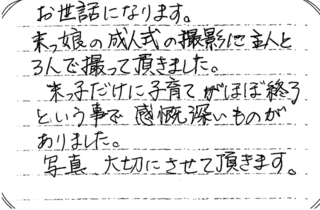 お世話になります。
末っ娘の成人式の撮影に主人と
3人で撮って頂きました。
末っ子だけに子育てがほぼ終了
という事で感慨深いものが
ありました。
写真、大切にさせて頂きます。